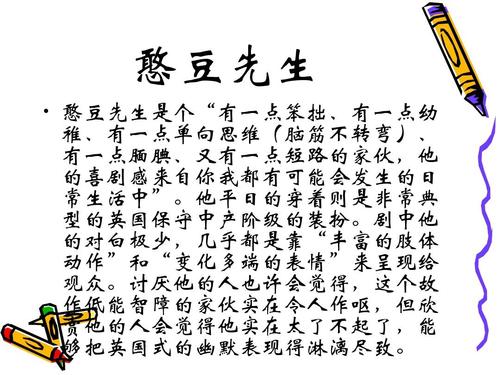 憨豆先生
• 憨豆先生是个“有一点笨拙、有一点幼
稚、有一点单向思维（脑筋不转弯）、
有一点腼腆、又有一点短路的家伙，他
的喜剧感来自你我都有可能会发生的日
常生活中”。他平日的穿着则是非常典
型的英国保守中产阶级的装扮。剧中他
的对白极少，几乎都是靠“丰富的肢体
动作”和“变化多端的表情”来呈现给
观众。讨厌他的人也许会觉得，这个故
作低能智障的家伙实在令人作呕，但欣
赏他的人会觉得他实在太了不起了，能
够把英国式的幽默表现得淋漓尽致。